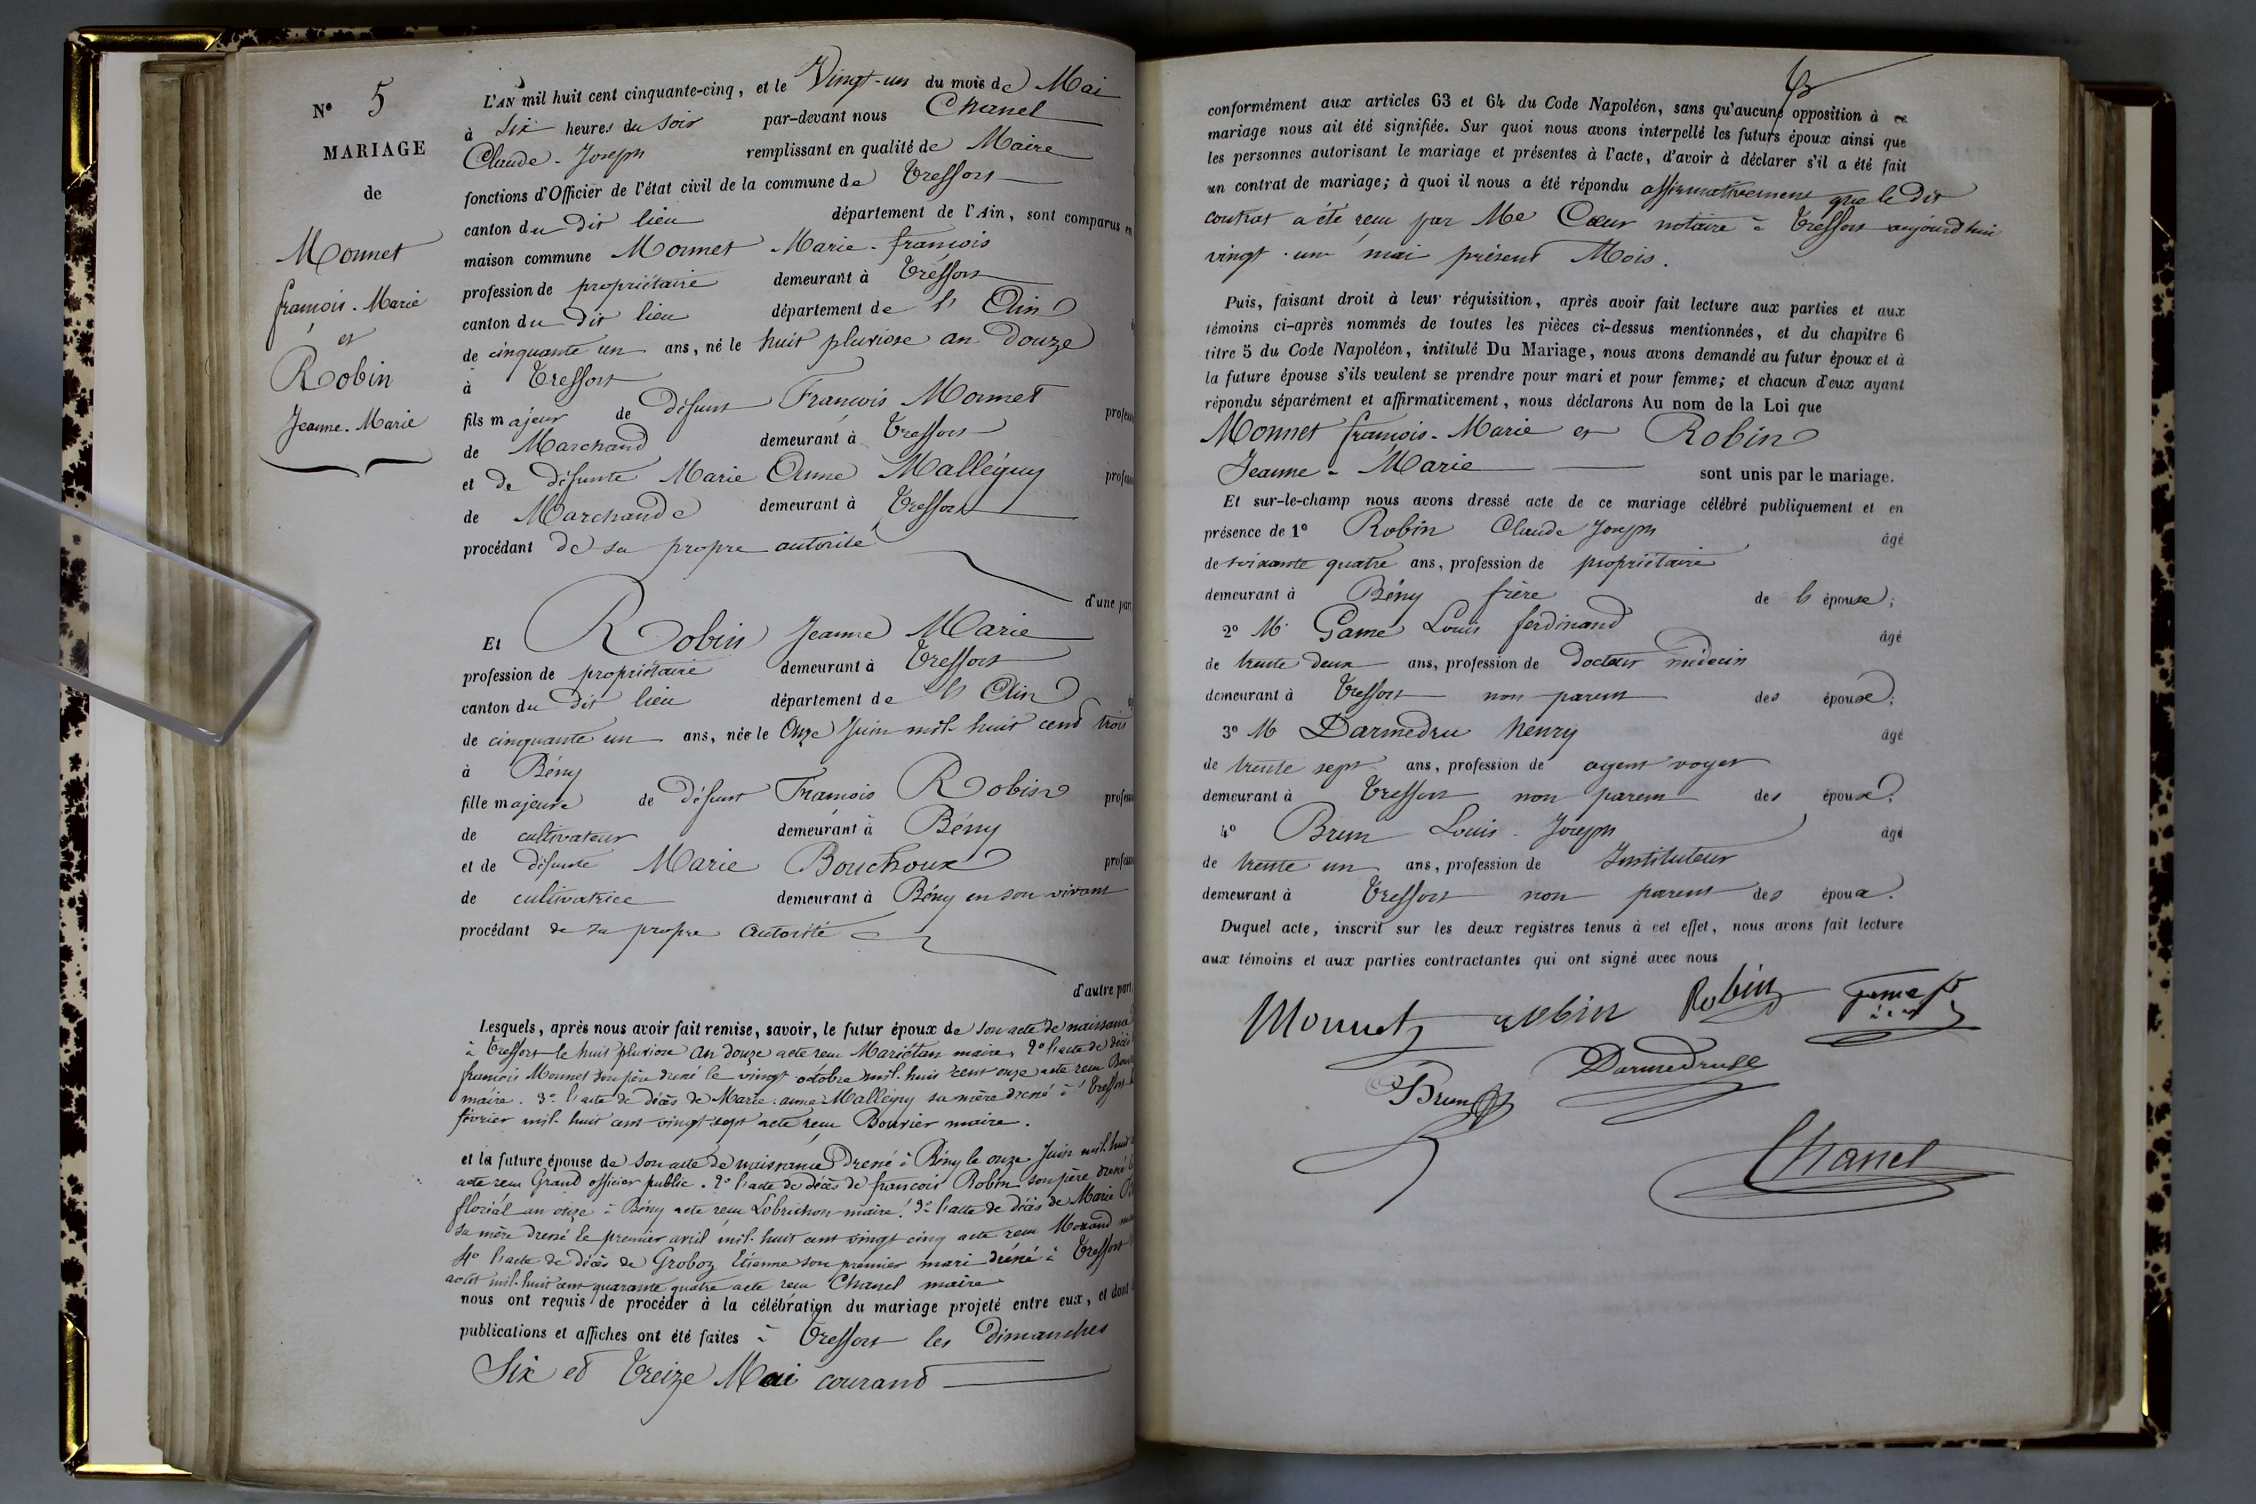 Nº 5
MARIAGE
de
Monnet
françois - Marie
et
Robin
Jeanne - Marie
L'AN mil huit cent cinquante-cinq, et le Vingt-un du mois de Mai
à Six heures du soir par-devant nous Chanel
Claude - Joseph remplissant en qualité de Maire
fonctions d'Officier de l'état civil de la commune de Treffort
canton du dit lieu département de l'Ain, sont comparus en
maison commune Monnet Marie - françois
profession de propriétaire demeurant à Treffort
canton du dit lieu département de l' Ain
de cinquante un ans, né le huit pluviose an Douze
à Treffort
fils majeur de défunt François Monnet profess
de Marchand demeurant à Treffort
et de défunte Marie Anne Malléguy profess
de Marchande demeurant à Treffort
procédant de sa propre autorité
d'une part
Et Robin Jeanne Marie
profession de propriétaire demeurant à Treffort
canton du dit lieu département de l' Ain
de cinquante un ans, née le Onze Juin mil huit cent trois
à Bény
fille majeure de défunt François Robin profess
de cultivateur demeurant à Bény
et de défunte Marie Bouchoux profess
de cultivatrice demeurant à Bény en son vivant
procédant de sa propre autorité
d'autre part
Lesquels, après nous avoir fait remise, savoir, le futur époux de son acte de naissance
à Treffort le huit pluviose an douze acte reçu Mariétan maire, 2º l'acte de décès
françois Monnet son père dressé le vingt octobre mil huit cent onze acte reçu
maire. 3º l'acte de décès de Marie anne Malléguy sa mère dressé à Treffort
février mil huit cent vingt sept acte reçu Bouvier maire.
et la future épouse de son acte de naissance dressé à Bény le onze Juin mil huit
acte reçu Grand officier public. 2º l'acte de décès de françois Robin son père dressé
floréal an onze à Bény acte reçu Lobrichon maire. 3º l'acte de décès de Marie
sa mère dressé le premier avril mil huit cent vingt cinq acte reçu Morand
4º l'acte de décès de Groboz Etienne son premier mari dréssé à Treffort
août mil huit cent quarante quatre acte reçu Chanel maire
nous ont requis de procéder à la célébration du mariage projeté entre eux, et dont
publications et affiches ont été faites à Treffort les Dimanches
Six et Treize Mai courant
conformément aux articles 63 et 64 du Code Napoléon, sans qu'aucune opposition à ce
mariage nous ait été signifiée. Sur quoi nous avons interpellé les futurs époux ainsi que
les personnes autorisant le mariage et présentes à l'acte, d'avoir à déclarer s'il a été fait
un contrat de mariage; à quoi il nous a été répondu affirmativement que le dit
contrat a été reçu par Me Cœur notaire à Treffort aujourd'hui
vingt - un mai présent Mois.
Puis, faisant droit à leur réquisition, après avoir fait lecture aux parties et aux
témoins ci-après nommés de toutes les pièces ci-dessus mentionnées, et du chapitre 6
titre 5 du Code Napoléon, intitulé Du Mariage, nous avons demandé au futur époux et à
la future épouse s'ils veulent se prendre pour mari et pour femme; et chacun d'eux ayant
répondu séparément et affirmativement, nous déclarons Au nom de la Loi que
Monnet françois - Marie et Robin
Jeanne - Marie sont unis par le mariage.
Et sur-le-champ nous avons dressé acte de ce mariage célébré publiquement et en
présence de 1º Robin Claude Joseph âgé
de soixante quatre ans, profession de propriétaire
demeurant à Bény frère de l' épouse;
2º M. Game Louis ferdinand âgé
de trente deux ans, profession de docteur médecin
demeurant à Treffort non parent des époux;
3º M Darmedru henry âgé
de trente sept ans, profession de agent voyer
demeurant à Treffort non parent des époux;
4º Brun Louis - Joseph âgé
de trente un ans, profession de Instituteur
demeurant à Treffort non parent des époux.
Duquel acte, inscrit sur les deux registres tenus à cet effet, nous avons fait lecture
aux témoins et aux parties contractantes qui ont signé avec nous
Monnet robin Robin Game
Brun Darmedru
Chanel